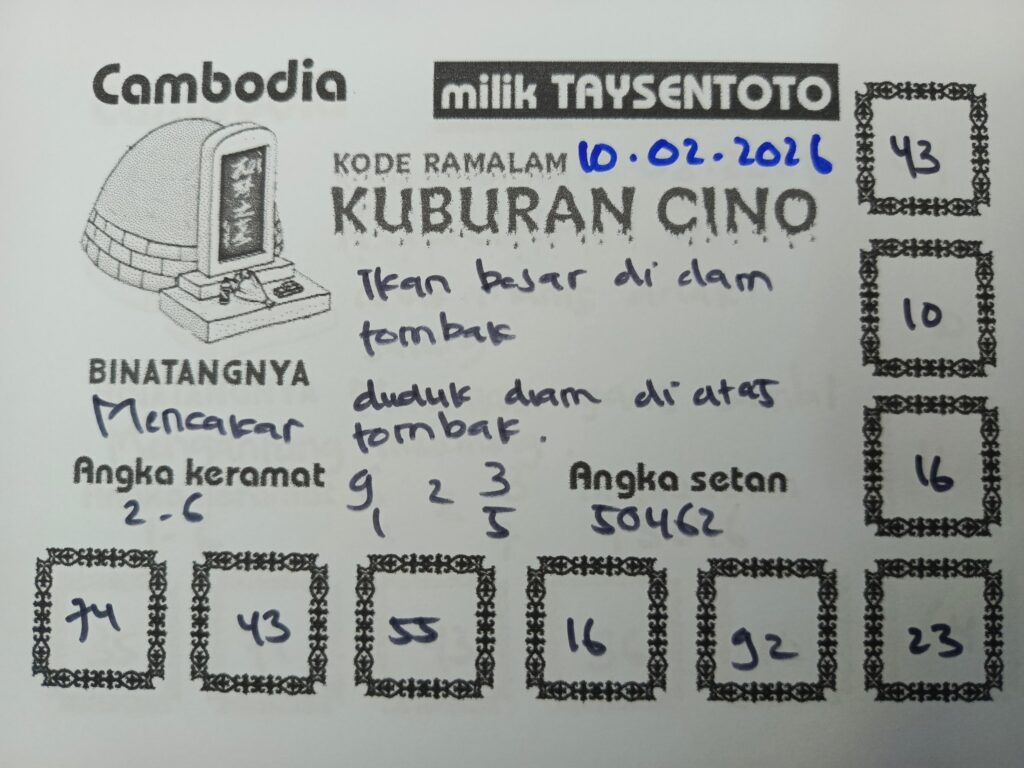 Cambodia
milik TAYSENTOTO
KODE RAMALAM 10.02.2026
KUBURAN CINO
43
Ikan besar di dam
tombak
10
BINATANGNYA
Mencakar
duduk diam di atas
tombak.
Angka keramat
2-6
9 2 3
1 5
Angka setan
50462
16
74 43 55 16 92 23